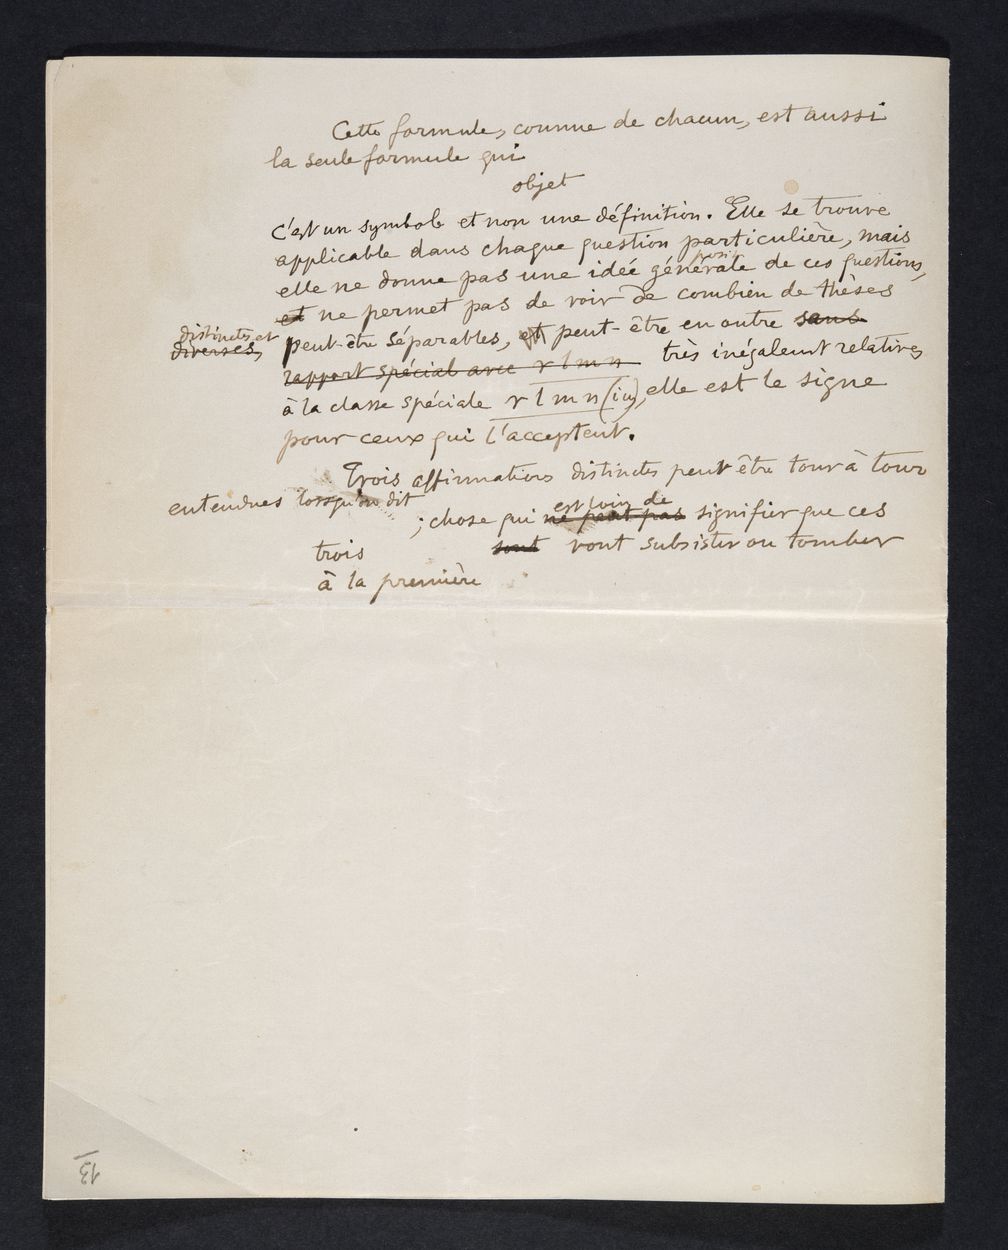 Cette formule, connue de chacun, est aussi
la seule formule qui
objet
c'est un symbole et non une définition. Elle se trouve
applicable dans chaque question particulière, mais
elle ne donne pas une idée générale de ces questions,
et ne permet pas de voir de combien de thèses
distinctes et
diverses, peut-être séparables, et peut-être en outre sans
rapport spécial avec r l m n très inégalement relatives
à la classe spéciale r l m n (icy), elle est le signe
pour ceux qui l'acceptent.
Trois affirmations distinctes peut être tour à tour
entendues lorsqu'on dit
est loin de
; chose qui ne peut pas signifier que ces
trois sont vont subsister ou tomber
à la première
13